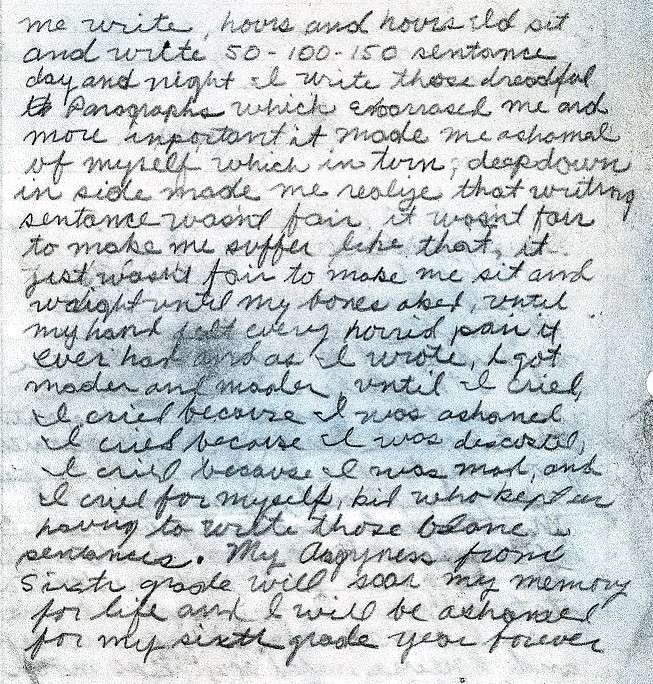 me write, hours and hours I'd sit
and write 50-100-150 sentance
day and night I write those dreadful
Paragraphs which embarrased me and
more inportant it made me ashamed
of myself which in turn, deep down
in side made me realize that writing
sentance wasn't fair it wasn't fair
to make me suffer like that, it
just wasn't fair to make me sit and
waight until my bones aked, until
my hand felt every horrid pain it
ever had and as I wrote, I got
mader and mader until I cried,
I cried because I was ashamed
I cried because I was discusted,
I cried because I was mad, and
I cried for myself, kid who kept on
having to write those
sentances. My Angryness from
Sixth grade will scar my memory
for life and I will be ashamed
for my sixth grade year forever